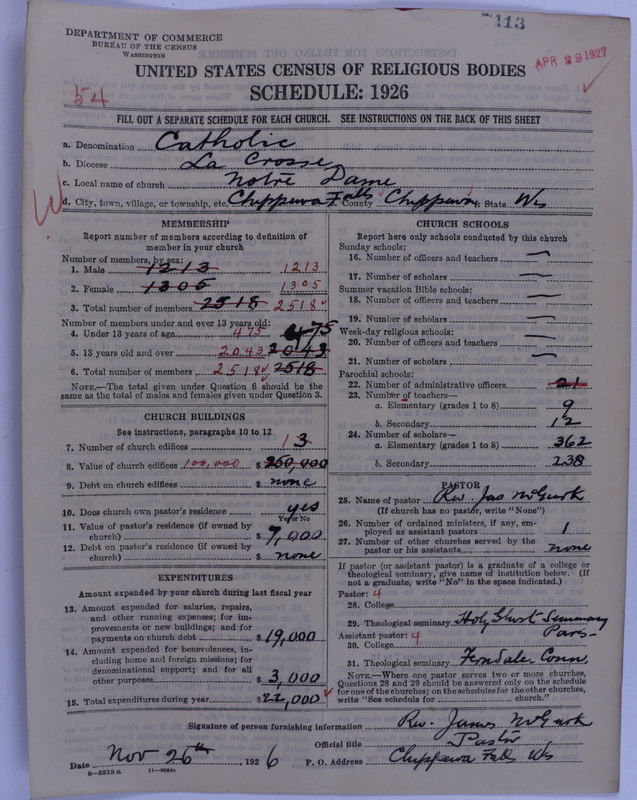 113
DEPARTMENT OF COMMERCE
BUREAU OF THE CENSUS
WASHINGTON
APR 29 1927
UNITED STATES CENSUS OF RELIGIOUS BODIES
SCHEDULE: 1926
54
FILL OUT A SEPARATE SCHEDULE FOR EACH CHURCH. SEE INSTRUCTIONS ON THE BACK OF THIS SHEET
a. Denomination Catholic
b. Diocese La Crosse
c. Local name of church Notre Dame
d. City, town, village, or township, etc. Chippewa Falls County Chippewa State Wis
MEMBERSHIP
Report number of members according to definition of
member in your church
Number of members, by sex:
1. Male 1213 1213
2. Female 1305 1305
3. Total number of members 2518 2518
Number of members under and over 13 years old:
4. Under 13 years of age 475 475
5. 13 years old and over 2043 2043
6. Total number of members 2518 2518
NOTE.—The total given under Question 6 should be the
same as the total of males and females given under Question 3.
CHURCH BUILDINGS
See instructions, paragraphs 10 to 12
7. Number of church edifices 1 3
8. Value of church edifices 100,000 $ 250,000
9. Debt on church edifices $ none
10. Does church own pastor's residence? yes
Yes or No
11. Value of pastor's residence (if owned by
church) $ 7,000
12. Debt on pastor's residence (if owned by
church) $ none
EXPENDITURES
Amount expended by your church during last fiscal year
13. Amount expended for salaries, repairs,
and other running expenses; for im-
provements or new buildings; and for
payments on church debt $ 19,000
14. Amount expended for benevolences, in-
cluding home and foreign missions; for
denominational support; and for all
other purposes $ 3,000
15. Total expenditures during year $ 22,000
CHURCH SCHOOLS
Report here only schools conducted by this church
Sunday schools:
16. Number of officers and teachers —
17. Number of scholars —
Summer vacation Bible schools:
18. Number of officers and teachers —
19. Number of scholars —
Week-day religious schools:
20. Number of officers and teachers —
21. Number of scholars —
Parochial schools:
22. Number of administrative officers 21
23. Number of teachers—
a. Elementary (grades 1 to 8) 9
b. Secondary 12
24. Number of scholars—
a. Elementary (grades 1 to 8) 362
b. Secondary 238
PASTOR
25. Name of pastor Rev. Jas McGurk
(If church has no pastor, write "None")
26. Number of ordained ministers, if any, em-
ployed as assistant pastors 1
27. Number of other churches served by the
pastor or his assistants none
If pastor (or assistant pastor) is a graduate of a college or
theological seminary, give name of institution below. (If
not a graduate, write "No" in the space indicated.)
Pastor: 4
28. College
29. Theological seminary Holy Ghost Seminary
Paris
Assistant pastor: 4
30. College
31. Theological seminary Ferndale Conn
NOTE.—Where one pastor serves two or more churches,
Questions 28 and 29 should be answered only on the schedule
for one of the churches; on the schedules for the other churches,
write "See schedule for church."
Signature of person furnishing information Rev. James McGurk
Official title Pastor
Date Nov 26th, 1926 P. O. Address Chippewa Falls Wis
8—5518a 11—9084